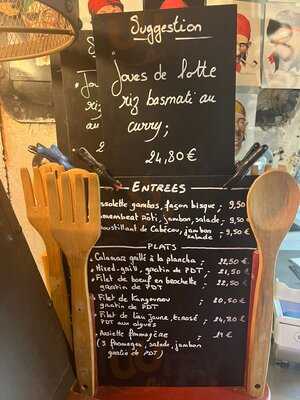 Suggestion
Joues de lotte
riz basmati au
curry;
24,80€
ENTREES
gambas, façon bisque; 9,50
rôti, jambon, salade; 9,50
de Cabécou, jambon; 9,50€
salade
PLATS
Calamar grillé à la plancha; 22,50€
Mixed-grill, gratin de PDT; 21,50€
Filet de boeuf en brochette; 22,50€
gratin de PDT
Filet de Kangourou; 20,50€
gratin de PDT
Filet de lieu jaune, écrasé; 24,80€
PDT aux algues
Assiette fromagère; 19€
(3 fromages, salade, jambon
gratin de PDT)